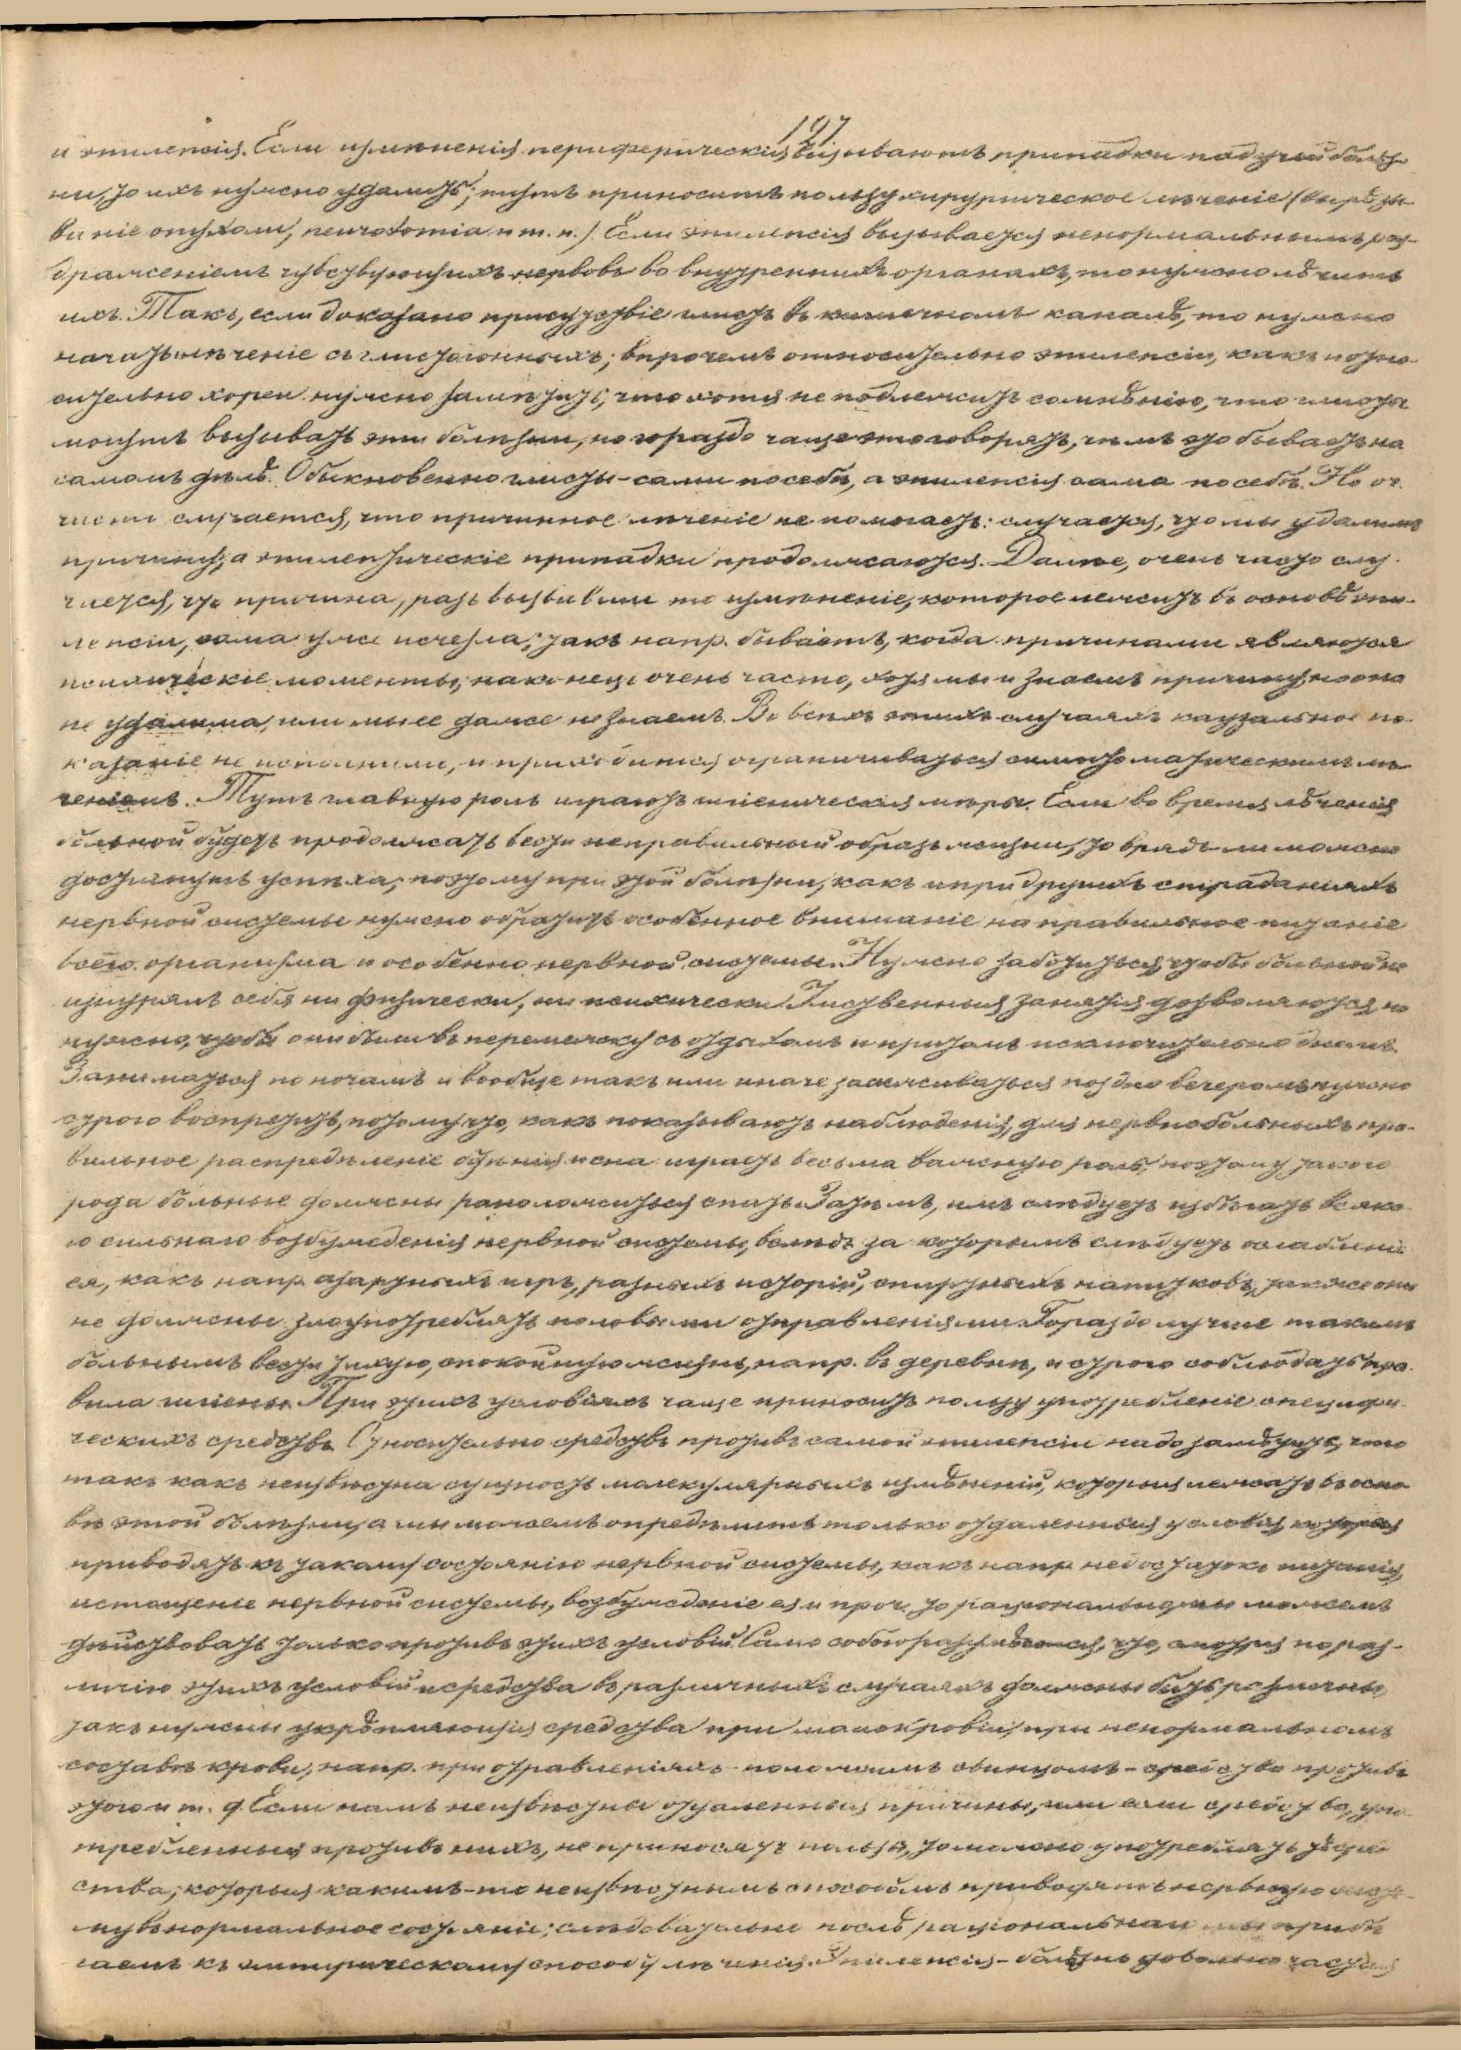 197
и эпилепсія. Если измѣненія периферическія вызываютъ припадки падучей болѣз-
ни, то ихъ нужно удалить; тутъ приноситъ пользу хирургическое лѣченіе (вырѣзы-
ваніе опухоли, neurotomia и т. п.) Если эпилепсія вызывается ненормальнымъ раз-
драженіемъ чувствующихъ нервовъ во внутреннихъ органахъ, то нужно лѣчить
ихъ. Такъ, если доказано присутствіе глистъ въ кишечномъ каналѣ, то нужно
начать лѣченіе съ глистогонныхъ; впрочемъ относительно эпилепсіи, какъ и отно-
сительно хореи нужно замѣтить, что хотя не подлежитъ сомнѣнію, что глисты
могутъ вызывать эти болѣзни, но гораздо чаще это говорятъ, чѣмъ это бываетъ на
самомъ дѣлѣ. Обыкновенно глисты - сами по себѣ, а эпилепсія сама по себѣ. Но оч.
часто случается, что причинное лѣченіе не помогаетъ: случается, что мы удалимъ
причину, а эпилептическіе припадки продолжаются. Далѣе, очень часто слу-
чается, что причина, разъ вызвавши то измѣненіе, которое лежитъ въ основѣ эпи-
лепсіи, сама уже исчезла; такъ напр. бываетъ, когда причинами являются
психическіе моменты; наконецъ очень часто, хотя мы и знаемъ причину, но она
не удалима, или мы ее даже не знаемъ. Во всѣхъ этихъ случаяхъ каузальное по-
казаніе не исполнимо, и приходится ограничиваться симптоматическимъ лѣ-
ченіемъ. Тутъ главную роль играютъ гигіеническія мѣры. Если во время лѣченія
больной будетъ продолжать вести неправильный образъ жизни, то врядъ ли можно
достигнуть успѣха; поэтому при этой болѣзни, какъ и при другихъ страданіяхъ
нервной системы нужно обратить особенное вниманіе на правильное питаніе
всего организма и особенно нервной системы. Нужно заботиться, чтобы больной не
изнурялъ себя ни физически, ни психически. Умственныя занятія дозволяются, но
нужно, чтобы они были въ перемежку съ отдыхомъ и притомъ исключительно днемъ.
Заниматься по ночамъ и вообще такъ или иначе засиживаться поздно вечеромъ нужно
строго воспретить, потому что, какъ показываютъ наблюденія, для нервнобольныхъ пра-
вильное распредѣленіе бдѣнія и сна играетъ весьма важную роль, поэтому такого
рода больные должны рано ложиться спать. Затѣмъ, имъ слѣдуетъ избѣгать всяка-
го сильнаго возбужденія нервной системы, вслѣдъ за которымъ слѣдуетъ ослабленіе
ея, какъ напр. азартныхъ игръ, разныхъ исторій, спиртныхъ напитковъ, также они
не должны злоупотреблять половыми отправленіями. Гораздо лучше такимъ
больнымъ вести тихую, спокойную жизнь, напр. въ деревнѣ, и строго соблюдать пра-
вила гигіены. При этихъ условіяхъ чаще приноситъ пользу употребленіе специфи-
ческихъ средствъ. Относительно средствъ противъ самой эпилепсіи надо замѣтить, что
такъ какъ неизвѣстна сущность молекулярныхъ измѣненій, которыя лежатъ въ осно-
вѣ этой болѣзни, а мы можемъ опредѣлить только отдаленныя условія, которыя
приводятъ къ такому состоянію нервной системы, какъ напр. недостатокъ питанія,
истощеніе нервной системы, возбужденіе ея и проч. то раціонально мы можемъ
дѣйствовать только противъ этихъ условій. Само собою разумѣется, что, смотря по раз-
личію этихъ условій и средства въ различныхъ случаяхъ должны быть различны,
такъ нужны укрѣпляющія средства при малокровіи, при ненормальномъ
составѣ крови, напр. при отравленіяхъ положимъ свинцомъ - средства противъ
этого и т. д. Если намъ неизвѣстны отдаленныя причины, или если средства, упо-
требленныя противъ нихъ, не приносятъ пользы, то можно употреблять тѣ сред-
ства, которыя какимъ-то неизвѣстнымъ способомъ приводятъ нервную систе-
му въ нормальное состояніе; слѣдовательно послѣ раціональнаго мы прибѣ-
гаемъ къ эмпирическому способу лѣченія. Эпилепсія - болѣзнь довольно частая